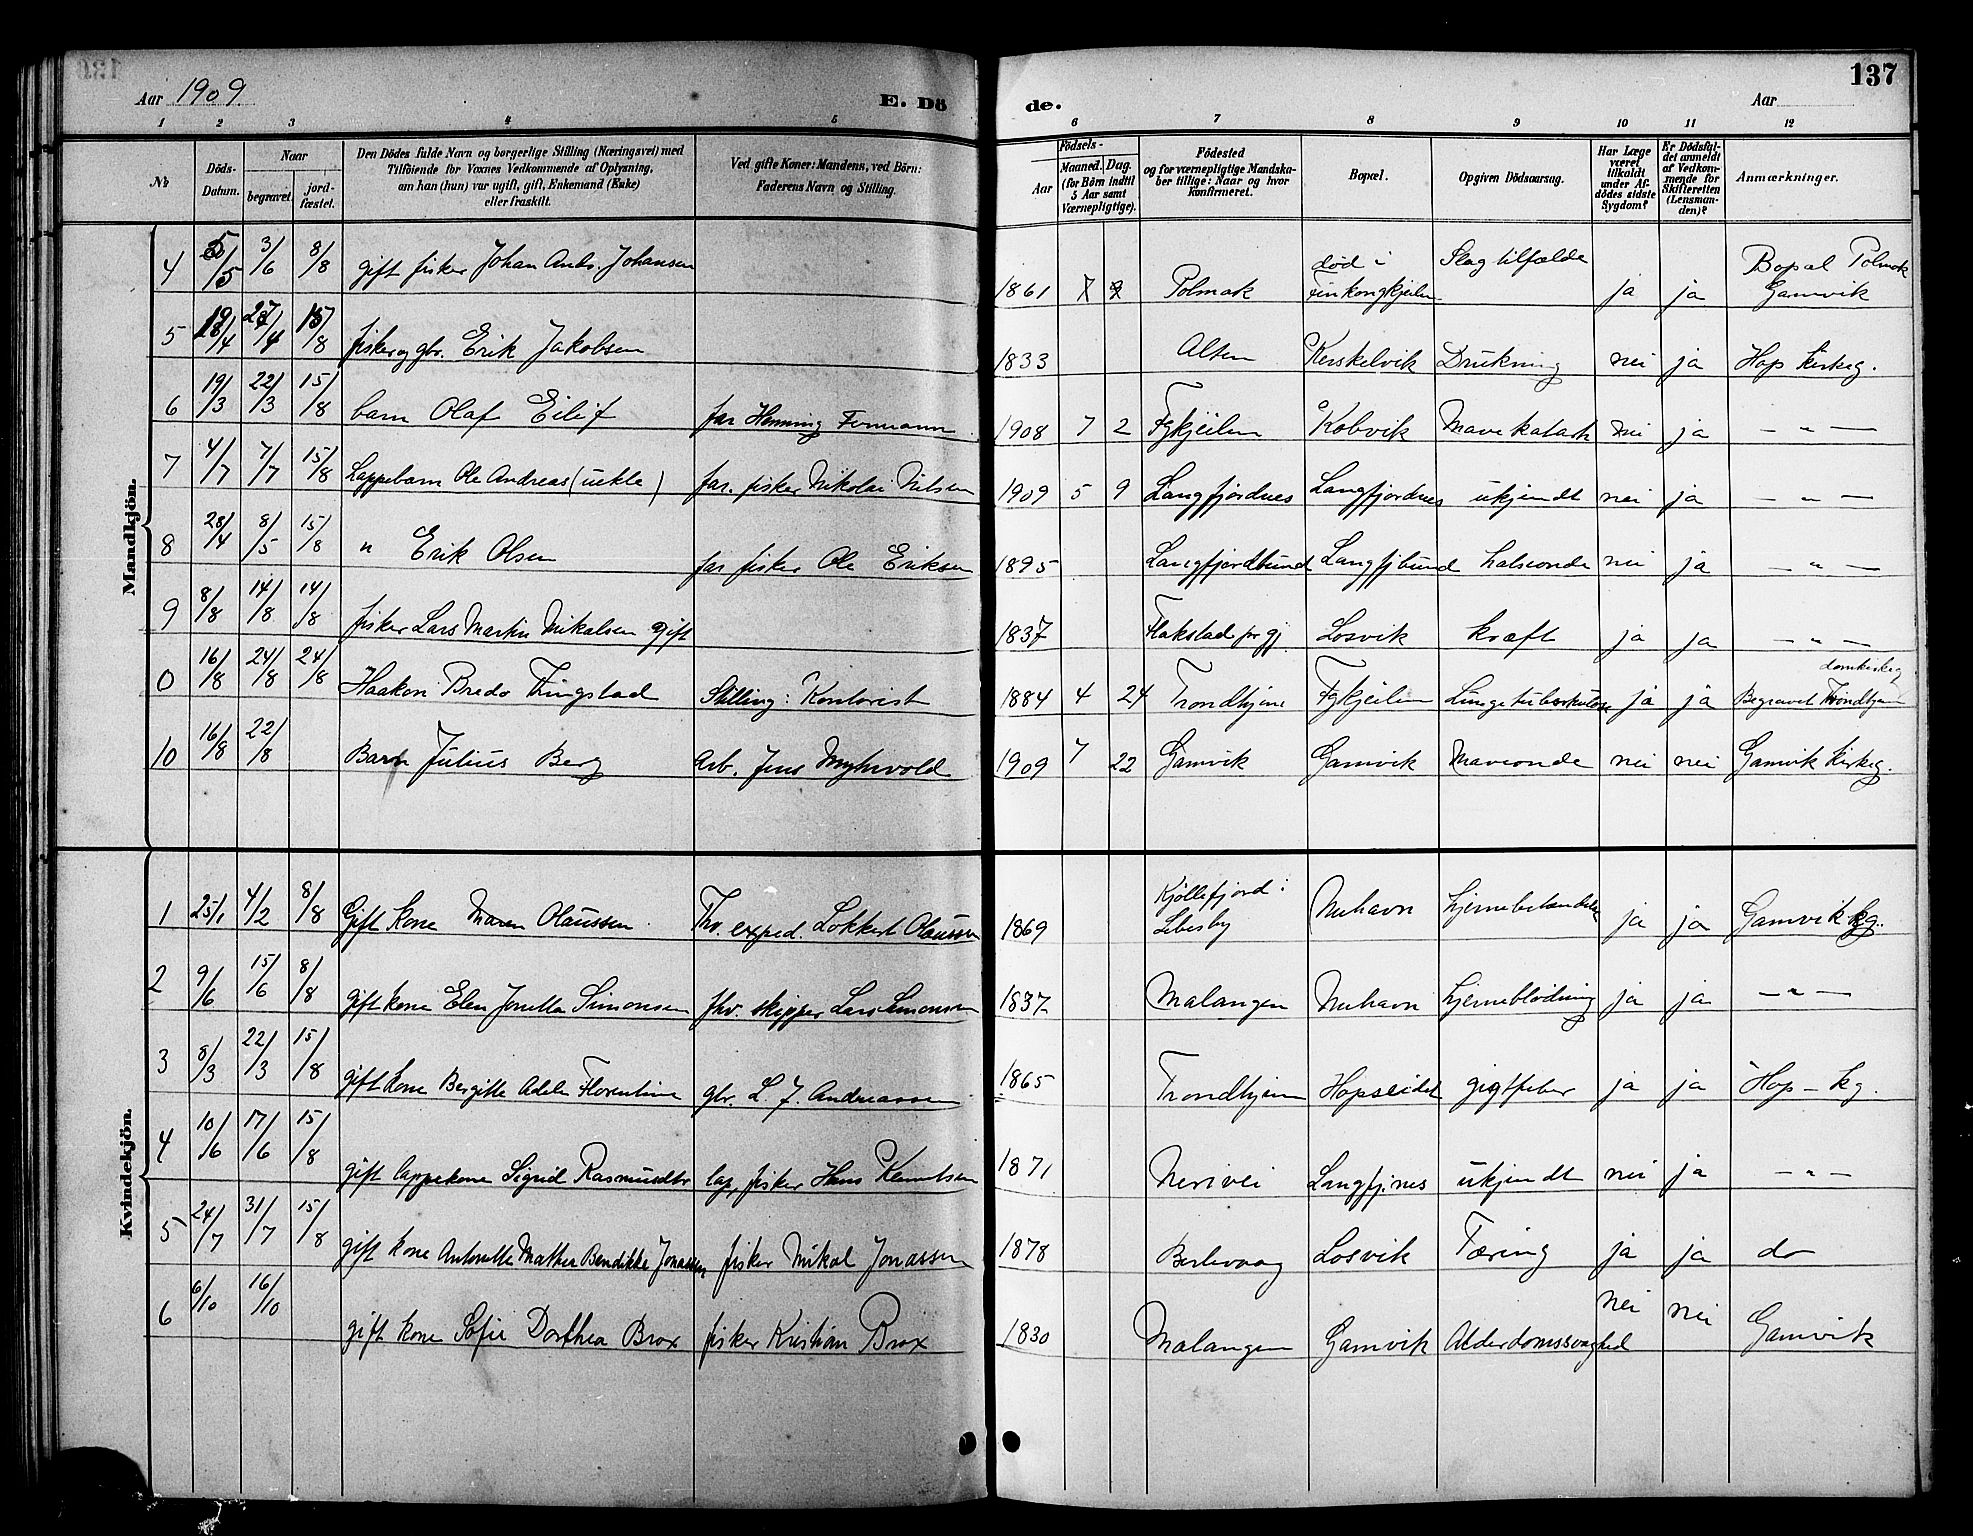 Aar 1909.
E. Dö
de.
Aar
137
1 2 3 4 5 6 7 8 9 10 11 12
№
Döds-Datum.
Naar
begravet.
jord-fæstet.
Den Dödes fulde Navn og borgerlige Stilling (Næringsvei) med
Tilföiende for Voxnes Vedkommende af Oplysning,
om han (hun) var ugift, gift, Enkemand (Enke)
eller fraskilt.
Ved gifte Koner: Mandens, ved Börn:
Faderens Navn og Stilling.
Födsels-
Aar
Maaned. Dag.
(for Börn indtil
5 Aar samt
Værnepligtige).
Födested
og for værnepligtige Mandska-
ber tillige: Naar og hvor
konfirmeret.
Bopæl.
Opgiven Dödsaarsag.
Har Læge
været
tilkaldt
under Af-
dödes sidste
Sygdom?
Er Dödsfal-
det anmeldt
af Vedkom-
mende for
Skifteretten
(Lensman-
den)?
Anmærkninger.
Mandkjön.
4 3/6 8/8 gift fisker Johan Johansen 1861 Polmak død i Finkongkjeilen Slagtilfælde ja ja Bopæl Polmak Gamvik
5 27/4 15/8 fisker og gbr. Erik Jakobsen 1833 Alten Kerskelvik Drukning nei ja Hop Kirkeg.
6 19/3 22/3 15/8 barn Olaf Eilif far Henning 1908 7 2 Fgkjeilen Kobvik Mavekatarh nei ja — " —
7 4/7 7/7 15/8 Lappebarn Ole Andreas (uekte) far. fisker Nikolai Nilsen 1909 5 9 Langfjordnes Langfjordnes ukjendt nei ja — " —
8 28/4 8/5 15/8 " Erik Olsen far fisker Ole Eriksen 1895 Langfjordbund Langfjbund halsonde nei ja — " —
9 8/8 14/8 14/8 fisker Lars Martin Nikalsen gift 1837 Flakstad prgj Losvik kræft ja ja — " —
0 16/8 24/8 24/8 Haakon Bredo Tingstad Stilling: Kontorist 1884 4 24 Trondhjem Fgkjeilen Lungetuberkulose ja ja Begravet Trondhjem domkirkeg
10 16/8 22/8 Barn Julius Berg Arb. Jens Myhrvold 1909 7 22 Gamvik Gamvik Maveonde nei nei Gamvik Kirkeg.
Kvindekjön.
1 25/1 4/2 8/8 Gift kone Maren Olaussen. Thv. exped. Lokkert Olaussen 1869 Kjøllefjord i Lebesby Mehavn ja ja Gamvik kg.
2 9/6 15/6 8/8 gift kone Elen Jonetta Simonsen fhv. skipper Lars Simonsen 1837 Malangen Mehavn hjerneblødning ja ja — " —
3 8/3 22/3 15/8 gift kone Bergitte Adele Florentine gbr. L. J. Andreassen 1865 Trondhjem Hopseidet gigtfeber ja ja Hop - kg.
4 10/6 17/6 15/8 gift lappekone Sigrid Rasmusdtr lap, fisker Hans Knutsen 1871 Nerivei Langfjnes ukjendt nei ja — " —
5 24/7 31/7 15/8 gift kone Antonette Mathea Bendikke Jonassen fisker Mikal Jonassen 1878 Berlevaag Losvik Tæring ja ja do
6 6/10 16/10 gift kone Sofie Dorthea Brox fisker Kristian Brox 1830 Malangen Gamvik Alderdomssvaghed nei nei Gamvik